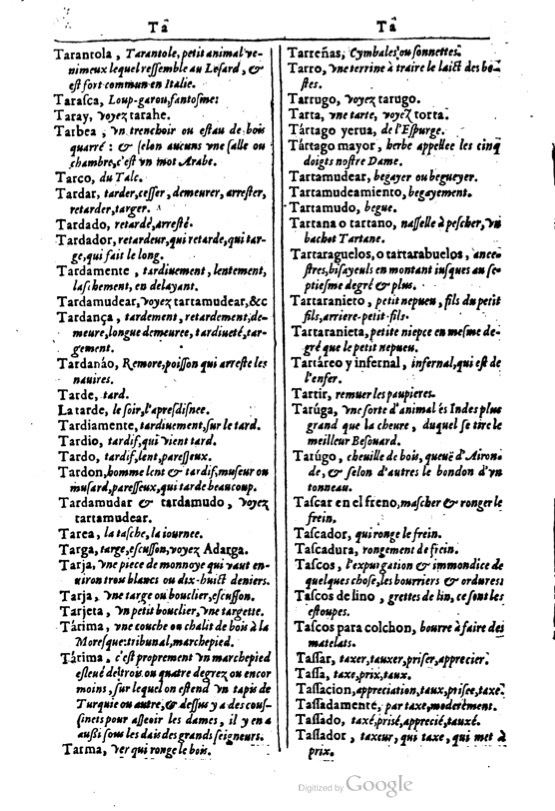 Ta
Ta
Tarantola, Tarantole, petit animal ve-
nimeux lequel ressemble au Lesard, &
est fort commun en Italie.
Tarasca, Loup-garou, fantosme:
Taray, voyez tarahe.
Tarbea, vn trenchoir ou estau de bois
quarré: & selon aucuns vne salle ou
chambre, c'est vn mot Arabe.
Tarco, du Talc.
Tardar, tarder, cesser, demeurer, arrester,
retarder, targer.
Tardado, retardé, arresté.
Tardador, retardeur, qui retarde, qui tar-
ge, qui fait le long.
Tardamente, tardiuement, lentement,
laschement, en delayant.
Tardamudear, voyez tartamudear, &c
Tardança, tardement, retardement, de-
meure, longue demeuree, tardiueté, tar-
gement.
Tardanáo, Remore, poisson qui arreste les
nauires.
Tarde, tard.
La tarde, le soir, l'apresdisnee.
Tardiamente, tardiuement, sur le tard.
Tardio, tardif, qui vient tard.
Tardo, tardif, lent, paresseux.
Tardon, homme lent & tardif, museur ou
musard, paresseux, qui tarde beaucoup.
Tardamudar & tardamudo, voyez
tartamudear.
Tarea, la tasche, la iournee.
Targa, targe, escusson, voyez Adarga.
Tarja, vne piece de monnoye qui vaut en-
uiron trois blancs ou dix-huict deniers.
Tarja, vne targe ou bouclier, escusson.
Tarjeta, vn petit bouclier, vne targette.
Tárima, vne couche ou chalit de bois à la
Moresque: tribunal, marchepied.
Tárima, c'est proprement vn marchepied
esleué de trois ou quatre degrez ou encor
moins, sur lequel on estend vn tapis de
Turquie ou autre, & dessus y a des cous-
sinets pour asseoir les dames, il y en a
aussi sous les dais des grands seigneurs.
Tarma, ver qui ronge le bois.
Tarreñas, Cymbales ou sonnettes.
Tarro, vne terrine à traire le laict des be-
stes.
Tarrugo, voyez tarugo.
Tarta, vne tarte, voyez torta.
Tártago yerua, de l'Espurge.
Tártago mayor, herbe appellee les cinq
doigts nostre Dame.
Tartamudear, begayer ou begueyer.
Tartamudeamiento, begayement.
Tartamudo, begue.
Tartana o tartano, nasselle à pescher, vn
bachot Tartane.
Tartaraguelos, o tartarabuelos, ance-
stres, bisayeuls en montant iusques au se-
ptiesme degré & plus.
Tartaranieto, petit nepueu, fils du petit
fils, arriere-petit-fils.
Tartaranieta, petite niepce en mesme de-
gré que le petit nepueu.
Tartáreo y infernal, infernal, qui est de
l'enfer.
Tartir, remuer les paupieres.
Tarúga, vne sorte d'animal és Indes plus
grand que la cheure, duquel se tire le
meilleur Besouard.
Tarúgo, cheuille de bois, queuë d'Airon-
de, & selon d'autres le bondon d'vn
tonneau.
Tascar en el freno, mascher & ronger le
frein.
Tascador, qui ronge le frein.
Tascadura, rongement de frein.
Tascos, l'expurgation & immondice de
quelques chose, les bourriers & ordures:
Tascos de lino, grettes de lin, ce sont les
estoupes.
Tascos para colchon, bourre à faire des
matelats.
Tassar, taxer, tauxer, priser, apprecier.
Tassa, taxe, prix, taux.
Tassacion, appreciation, taux, prisee, taxe.
Tassadamente, par taxe, moderément.
Tassado, taxé, prisé, apprecié, tauxé.
Tassador, taxeur, qui taxe, qui met à
prix.
Digitized by Google